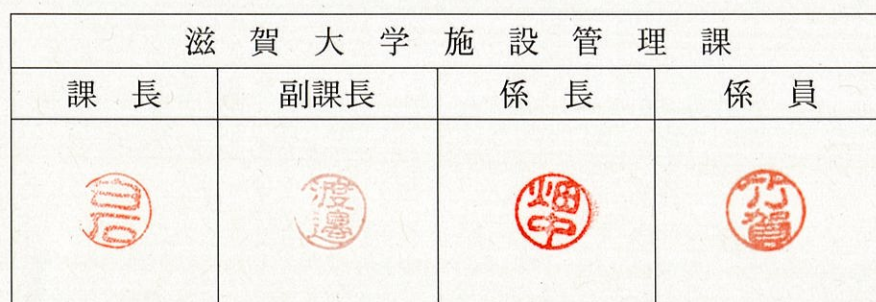 滋賀大学施設管理課
課長 副課長 係長 係員
渡邊 畑中